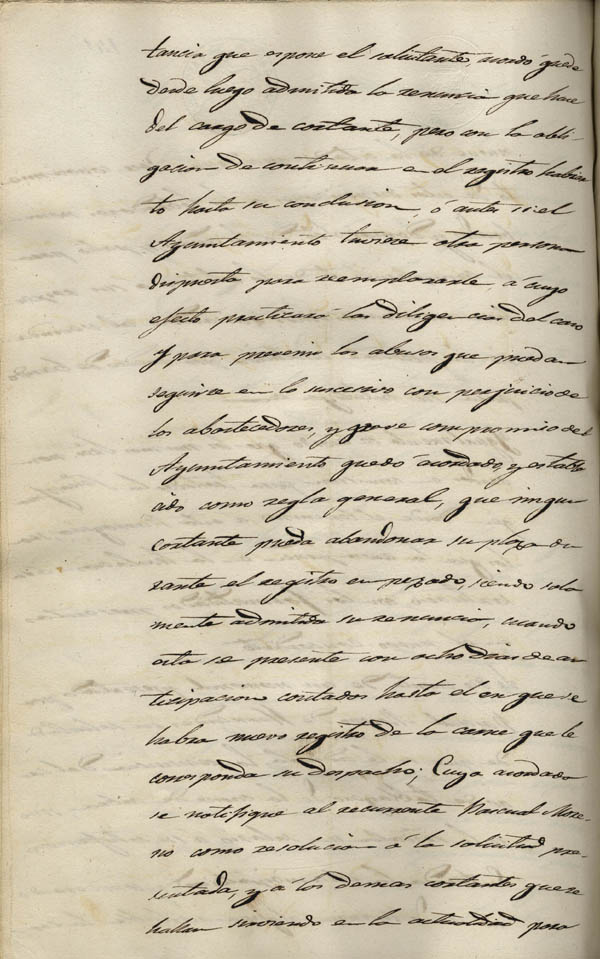 tancia que espone el solicitante, acordó quede
desde luego admitida la renuncia que hace
del cargo de cortante, pero con la obli-
gacion de continuar en el registro habier
to hasta su conclusion, ó antes si el
Ayuntamiento tuviese otra persona
dispuesta para reemplazarle á cuyo
efecto practicará las diligencias del caso
y para prevenir los abusos que puedan
seguirse en lo sucesivo con perjuicio de
los abastecedores, y grave compromiso del
Ayuntamiento quedó acordado, y estable
cido como regla general, que ningun
cortante pueda abandonar su plaza du
rante el registro empezado, siendo sola
mente admitida su renuncia, cuando
esta se presente con ocho dias de an
ticipacion contados hasta el en que se
habra nuevo registro de la carne que le
corresponda su despacho; Cuyo acordado
se notifique al recurrente Pascual More-
no como resolucion á la solicitud pre-
sentada, y á los demas cortantes que se
hallan sirviendo en la actualidad para